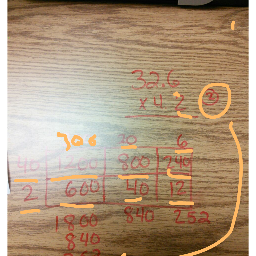 32.6
x 4 2 2
300 20 6
40 1200 800 240
2 600 40 12
1800 840 252
840